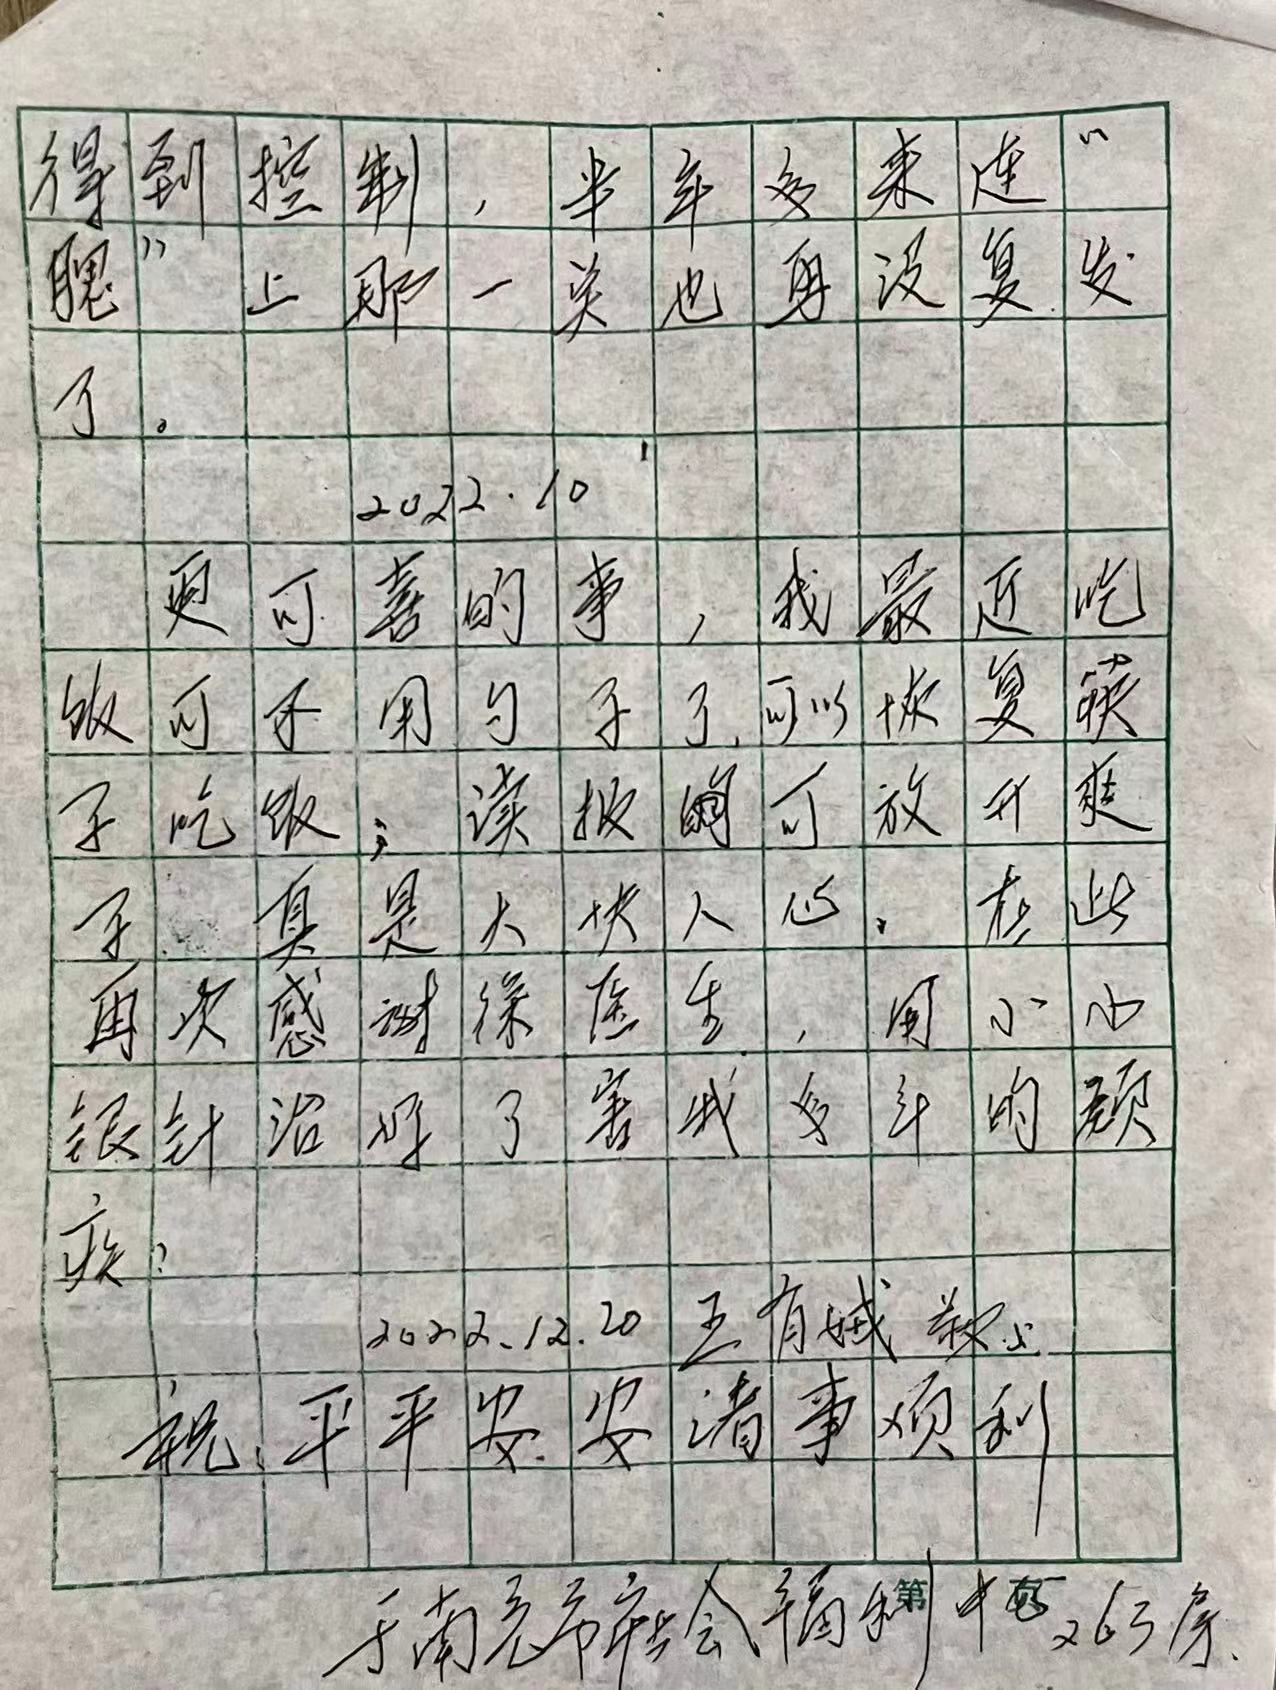 得到控制，半年多来连“
腮”上那一关也再没复发
了。
2022.10
更可喜的事，我最近吃
饭可不用勺子了，可以恢复筷
子吃饭；读报纸可放开爽
子 真是大快人心。在此
再次感谢徐医生，用小小
银针治好了害我多年的顽
疾。
2022.12.20 王有 敬上
祝：平平安安诸事顺利
第 页
于南充市社会福利中心263房.